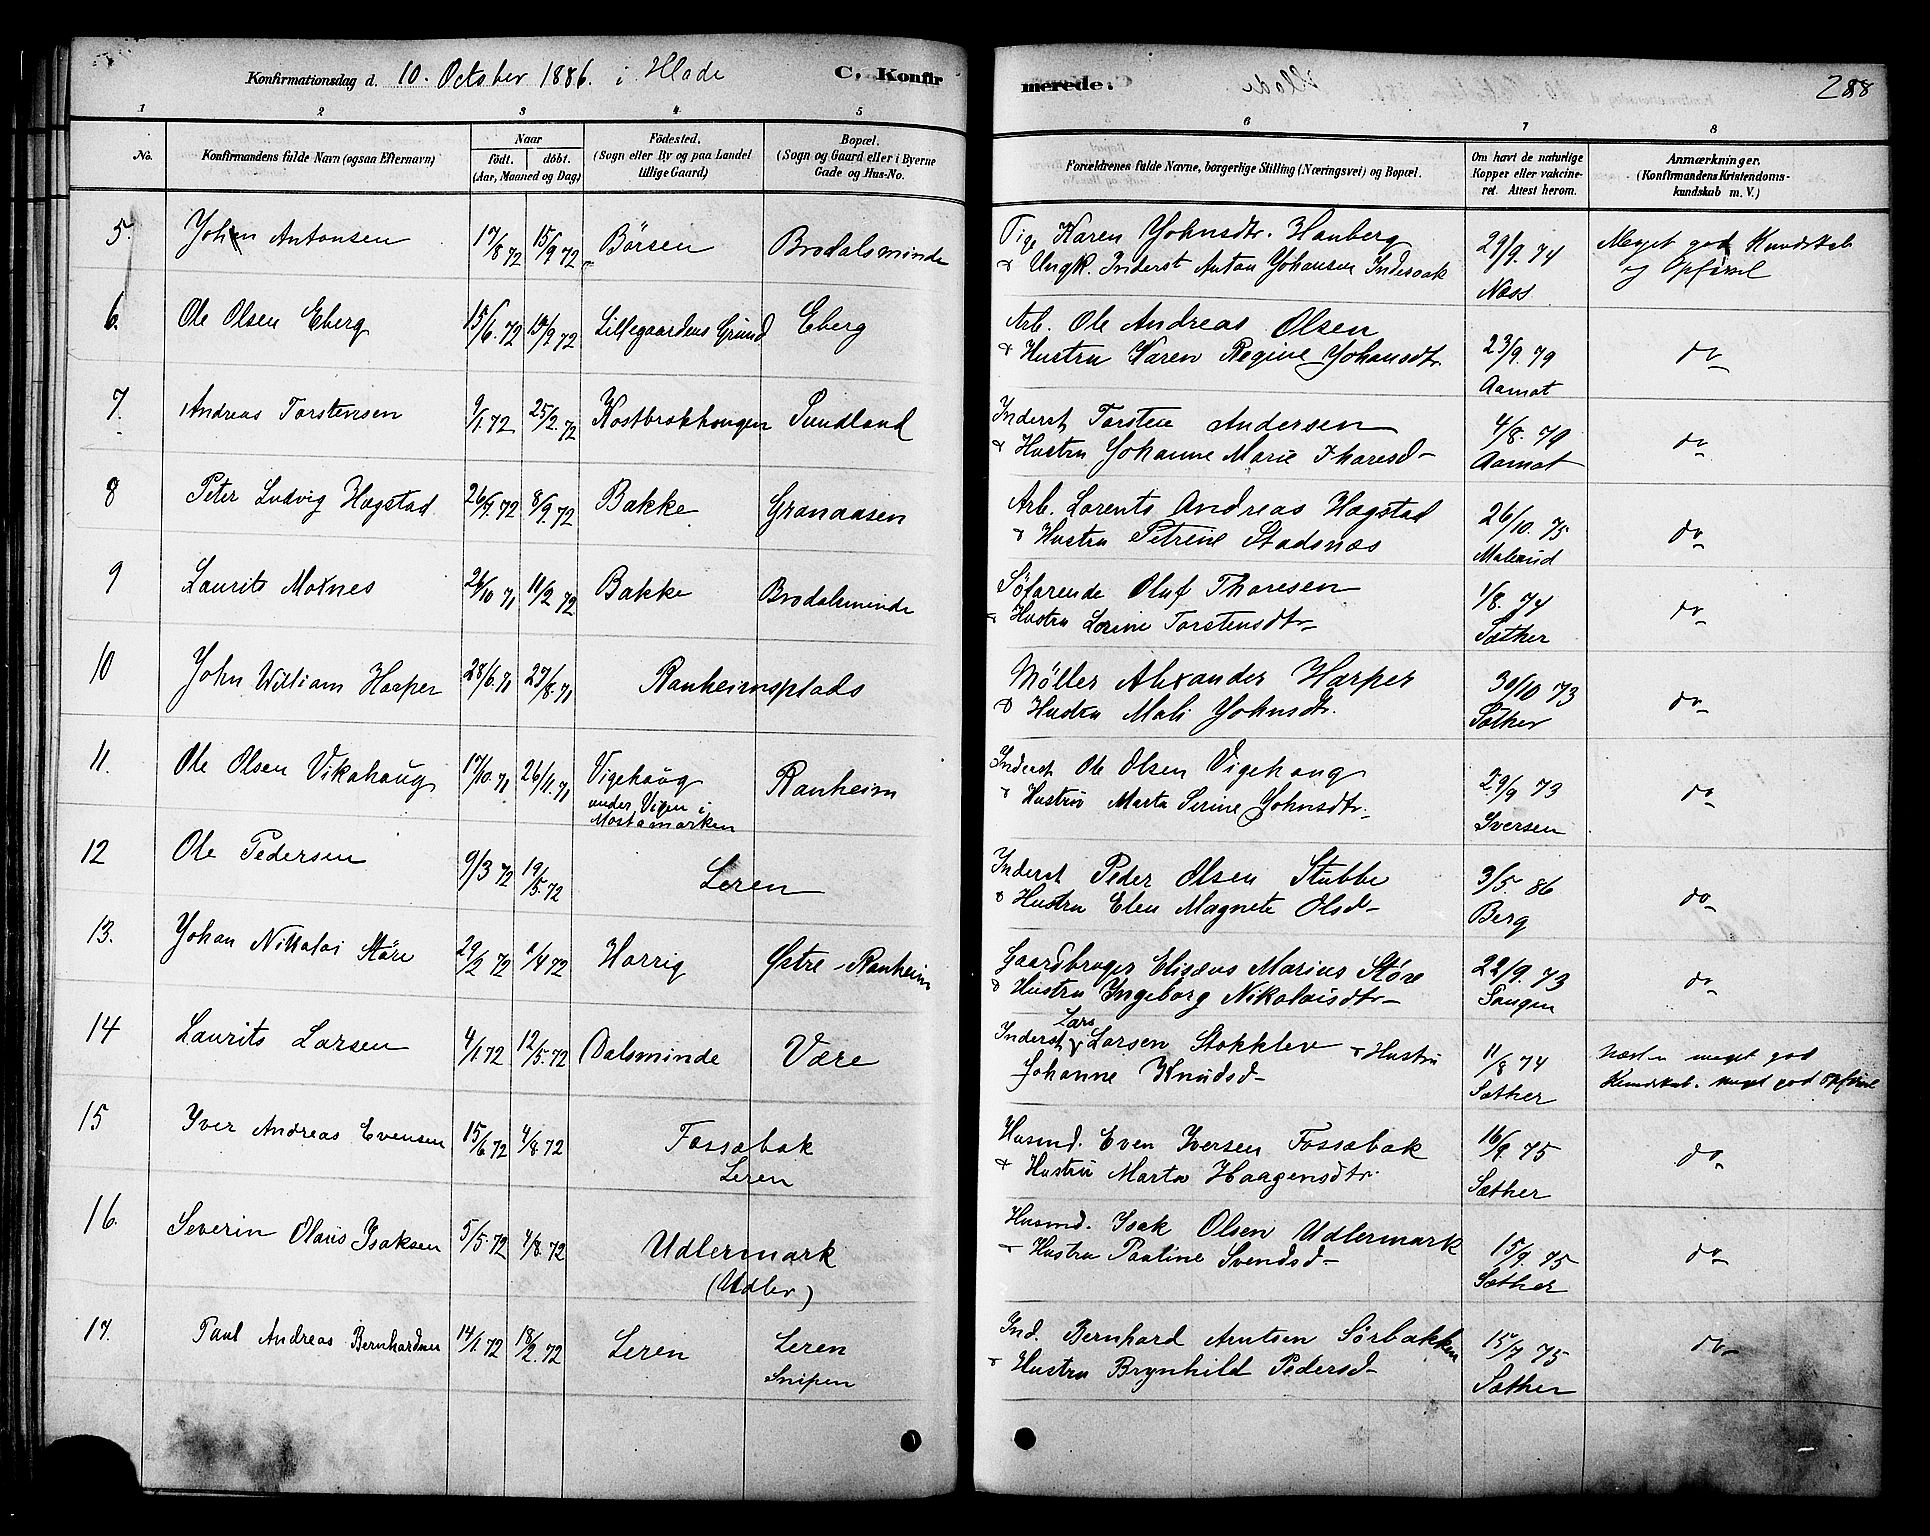 Konfirmationsdag d. 10. October 1886. i Hlade
C. Konfirmerede.
288
1 2 3 4 5 6 7 8
No.
Konfirmandens fulde Navn (ogsaa Efternavn)
Naar
födt. döbt.
(Aar, Maaned og Dag)
Födested.
(Sogn eller By og paa Landet
tillige Gaard)
Bopæl.
(Sogn og Gaard eller i Byerne
Gade og Hus-No.
Forældrenes fulde Navne, borgerlige Stilling (Næringsvei) og Bopæl.
Om havt de naturlige
Kopper eller vakcineret. Attest herom.
Anmærkninger.
(Konfirmandens Kristendomskundskab m. V.)
5. Johan Antonsen 17/8 72 15/9 72 Börsen Brodalsminde
Pige Karen Johnsdtr. Hanberg
& Ungk. Inderst Anton Johansen
29/9. 74
Næss
Meget god Kundskab
og Opförsel
6. Ole Olsen Eberg 15/6. 72 15/9 72 Lillegaardens Grund Eberg
Arb. Ole Andreas Olsen
& Hustru Karen Regine Johansdtr.
23/9. 79
Aamot
do
7. Andreas Torstensen 9/1. 72 25/2. 72 Sundland
Inderst Torsten Andersen
& Hustru Johanne Marie Tharesd
4/8. 79
Aamot
do
8 Peter Ludvig Hagstad 26/7. 72 8/9. 72 Bakke Granaasen
Arb. Lorents Andreas Hagstad
& Hustru Petrine Stadsnæs
26/10. 75
do
9 Laurits Moxnes 26/10 71 11/2 72 Bakke Brodalsminde
Söfarende Oluf Tharesen
Hustru Lorine Torstensdtr
1/8. 74
Sæther
do
10 John William Harper 28/6. 71 27/8. 71 Ranheimsplads
Möller Alexander Harper
& Hustru Mali Johnsdtr.
30/10 73
Sæther
do
11. Ole Olsen Vikahaug 17/10 71 26/11. 71 Vigehaug
under Vigen i
Mostamarken
Ranheim
Inderst Ole Olsen Vigehaug
& Hustru Marta Serine Johnsdtr.
29/9 73
Iversen
do
12 Ole Pedersen 9/3 72 19/5. 72 Leren
Inderst Peder Olsen Stubbe
& Hustru Elen Magnete Olsd
3/5. 86
Berg
do
13. Johan Nikolai Störe 29/2 72 1/4 72 Horrig Østre-Ranheim
Gaardbruger Elisæus Marius Störe
& Hustru Ingeborg Nikolaisdtr
22/9. 73
do
14 Laurits Larsen 4/1. 72 12/5. 72 Dalsminde Være
Inderst Lars Larsen Stokklev & Hustru
Johanne Knudsd
11/8 74
Sæther
næsten meget god
Kundskab. meget god Opförsel
15 Iver Andreas Evensen 15/6 72 4/8 72 Fossebak
Leren
Husmd. Even Iversen Fossebak
& Hustru Marta Haagensdtr.
16/9 75
Sæther
do
16. Severin Olaus Isaksen 5/5. 72 4/8. 72 Udlermark
(Udler)
Husmd. Isak Olsen Udlermark
Hustru Pauline Svendsd
15/9. 75
Sæther
do
17. Paul Andreas Bernhardsen 14/1. 72 18/2. 72 Leren Leren
Snipen
Ind. Bernhard Arntsen Sörbakken
& Hustru Brynhild Pedersd
15/7 75
Sæther
do